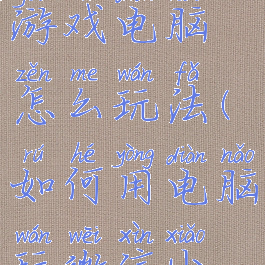 游戏电脑
zěn me wán fǎ
怎么玩法(
rú hé yòng diàn nǎo
如何用电脑
wán wēi xìn xiǎo
玩微信小